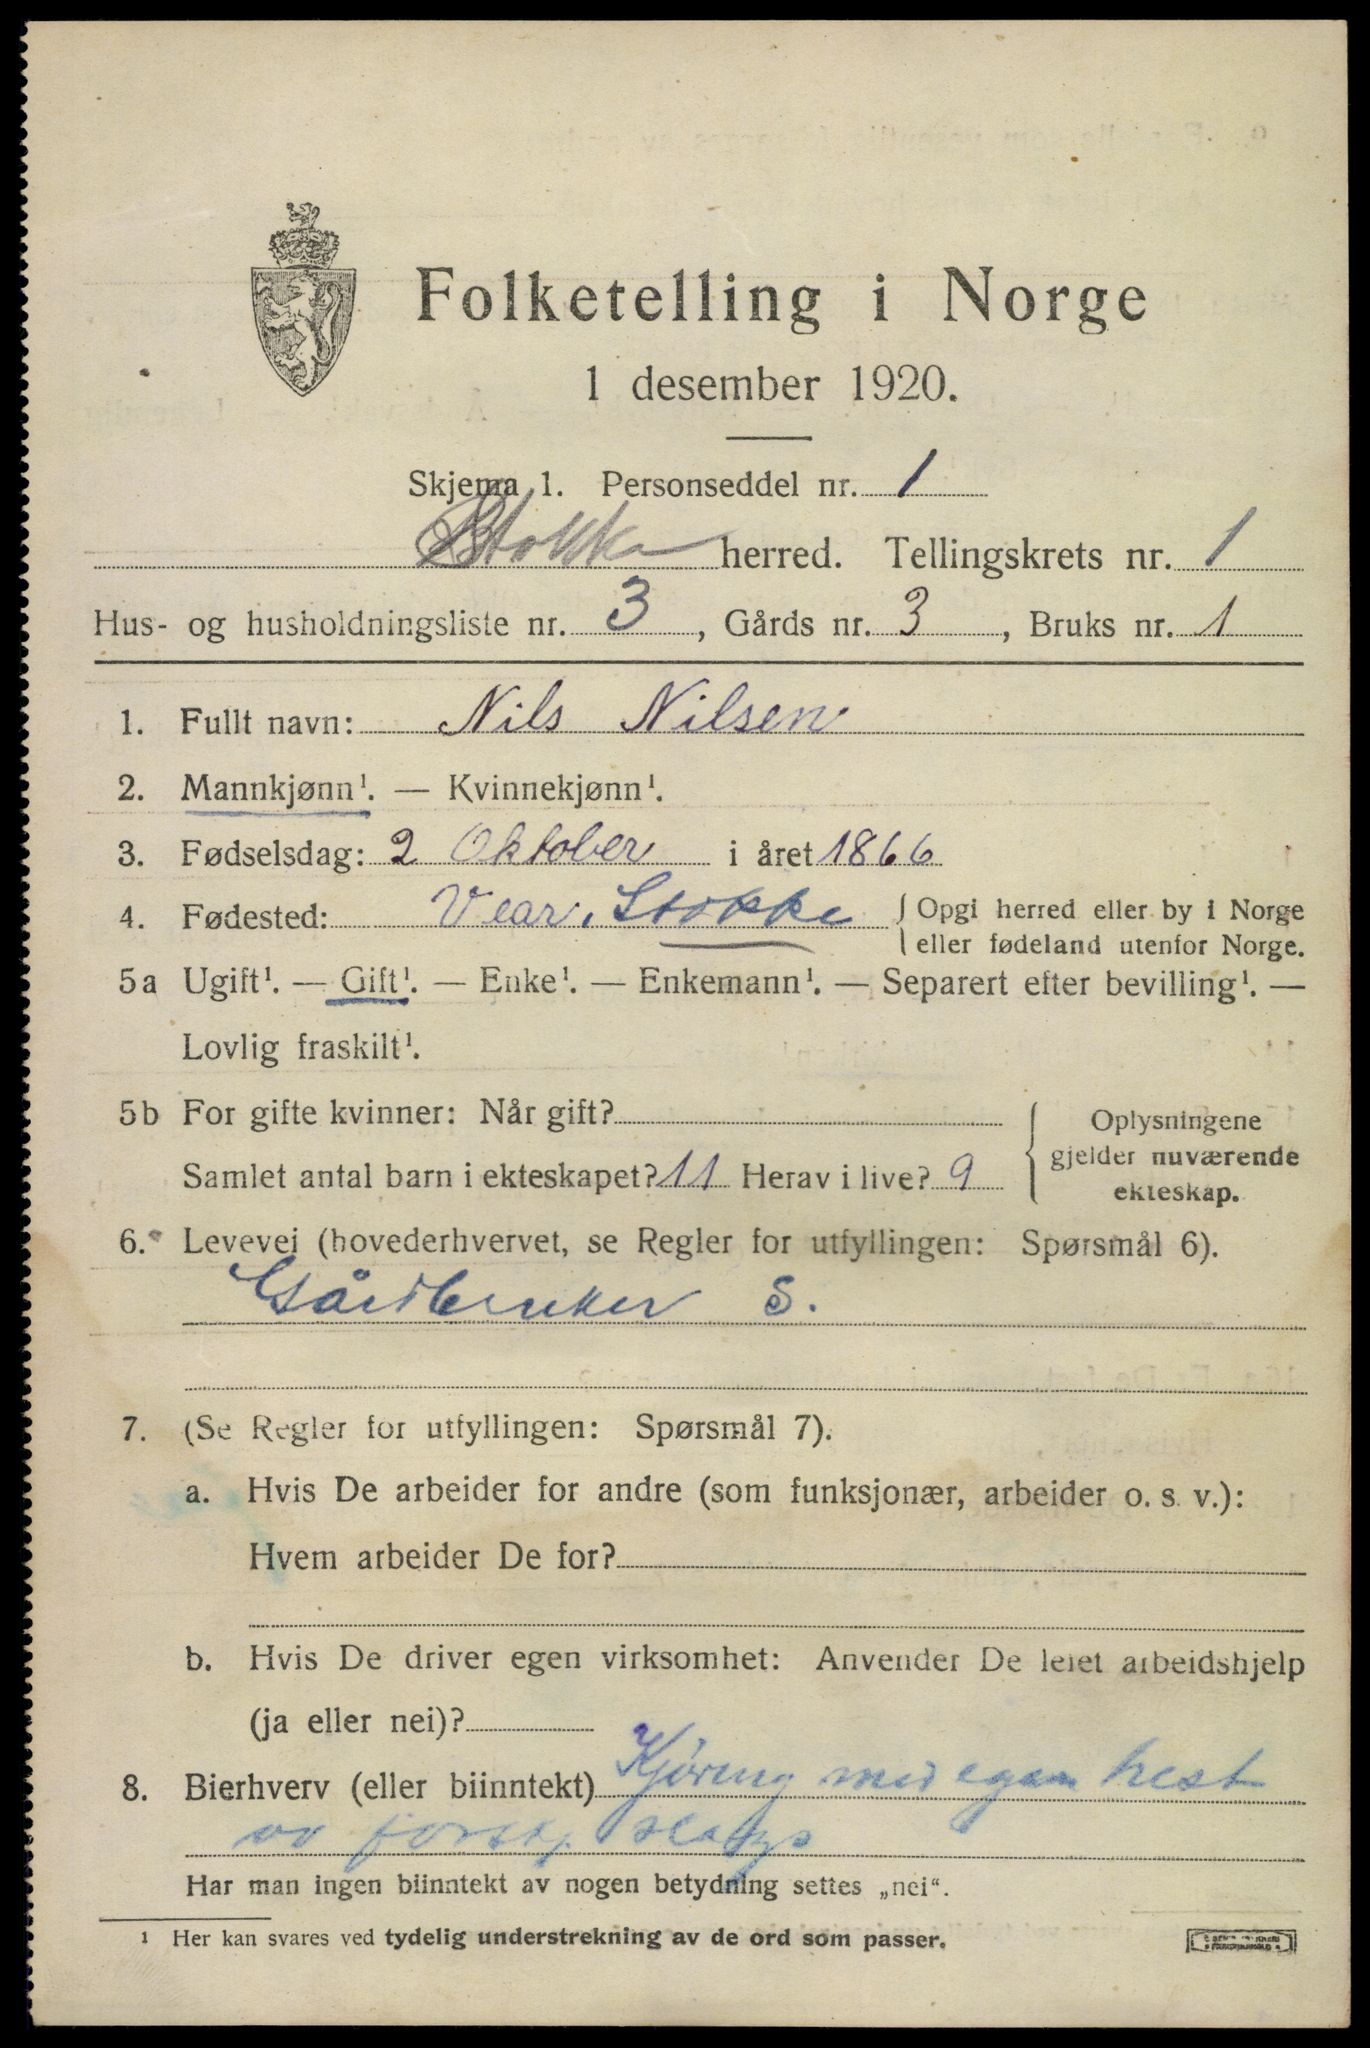 Folketelling i Norge
1 desember 1920.
Skjema 1. Personseddel nr. 1
Stokke herred. Tellingskrets nr. 1
Hus- og husholdningsliste nr. 3, Gårds nr. 3, Bruks nr. 1
1. Fullt navn: Nils Nilsen
2. Mannkjønn¹. — Kvinnekjønn¹.
3. Fødselsdag: 2 Oktober i året 1866
4. Fødested: Vear, Stokke { Opgi herred eller by i Norge
eller fødeland utenfor Norge.
5a Ugift¹. — Gift¹. — Enke¹. — Enkemann¹. — Separert efter bevilling¹. —
Lovlig fraskilt¹.
5b For gifte kvinner: Når gift?
Samlet antal barn i ekteskapet? 11 Herav i live? 9
{ Oplysningene
gjelder nuværende
ekteskap.
6. Levevei (hovederhvervet, se Regler for utfyllingen: Spørsmål 6).
Gårdbruker S.
7. (Se Regler for utfyllingen: Spørsmål 7).
a. Hvis De arbeider for andre (som funksjonær, arbeider o. s. v.):
Hvem arbeider De for?
b. Hvis De driver egen virksomhet: Anvender De leiet arbeidshjelp
(ja eller nei)?
8. Bierhverv (eller biinntekt) Kjøring med egen hest
av forskj. slags
Har man ingen biinntekt av nogen betydning settes „nei“.
¹ Her kan svares ved tydelig understrekning av de ord som passer.